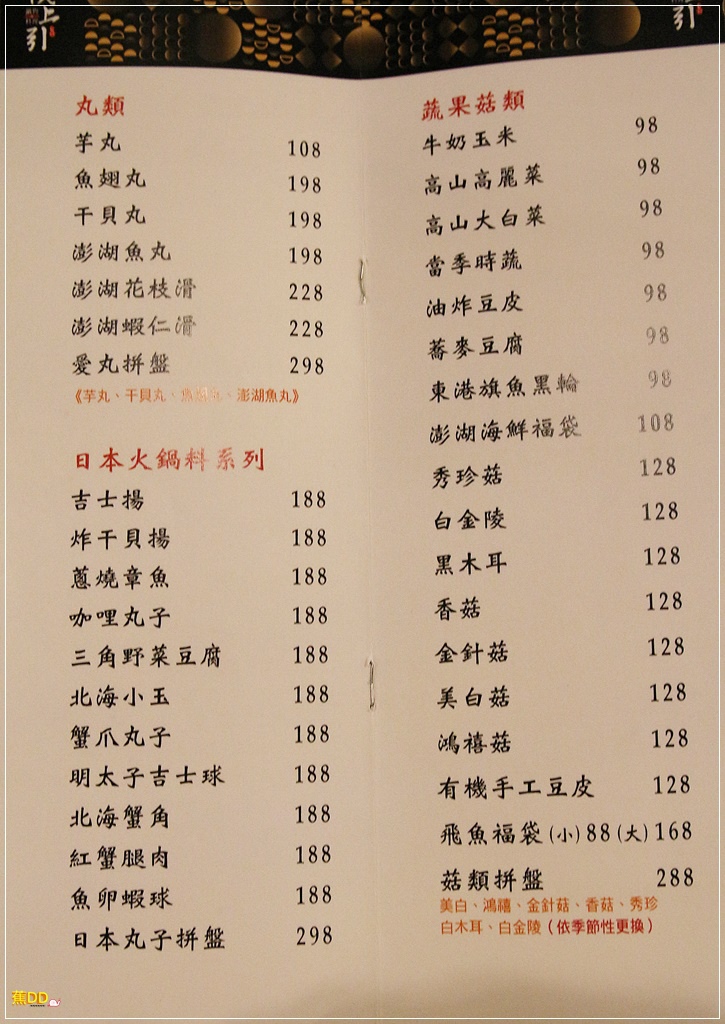 上引
丸類
芋丸 108
魚翅丸 198
干貝丸 198
澎湖魚丸 198
澎湖花枝滑 228
澎湖蝦仁滑 228
愛丸拼盤 298
《芋丸、干貝丸、魚翅丸、澎湖魚丸》
日本火鍋料系列
吉士揚 188
炸干貝揚 188
蔥燒章魚 188
咖哩丸子 188
三角野菜豆腐 188
北海小玉 188
蟹爪丸子 188
明太子吉士球 188
北海蟹角 188
紅蟹腿肉 188
魚卵蝦球 188
日本丸子拼盤 298
蔬果菇類
牛奶玉米 98
高山高麗菜 98
高山大白菜 98
當季時蔬 98
油炸豆皮 98
蕎麥豆腐 98
東港旗魚黑輪 98
澎湖海鮮福袋 108
秀珍菇 128
白金陵 128
黑木耳 128
香菇 128
金針菇 128
美白菇 128
鴻禧菇 128
有機手工豆皮 128
飛魚福袋(小)88(大)168
菇類拼盤 288
美白、鴻禧、金針菇、香菇、秀珍
白木耳、白金陵(依季節性更換)
蕉DD